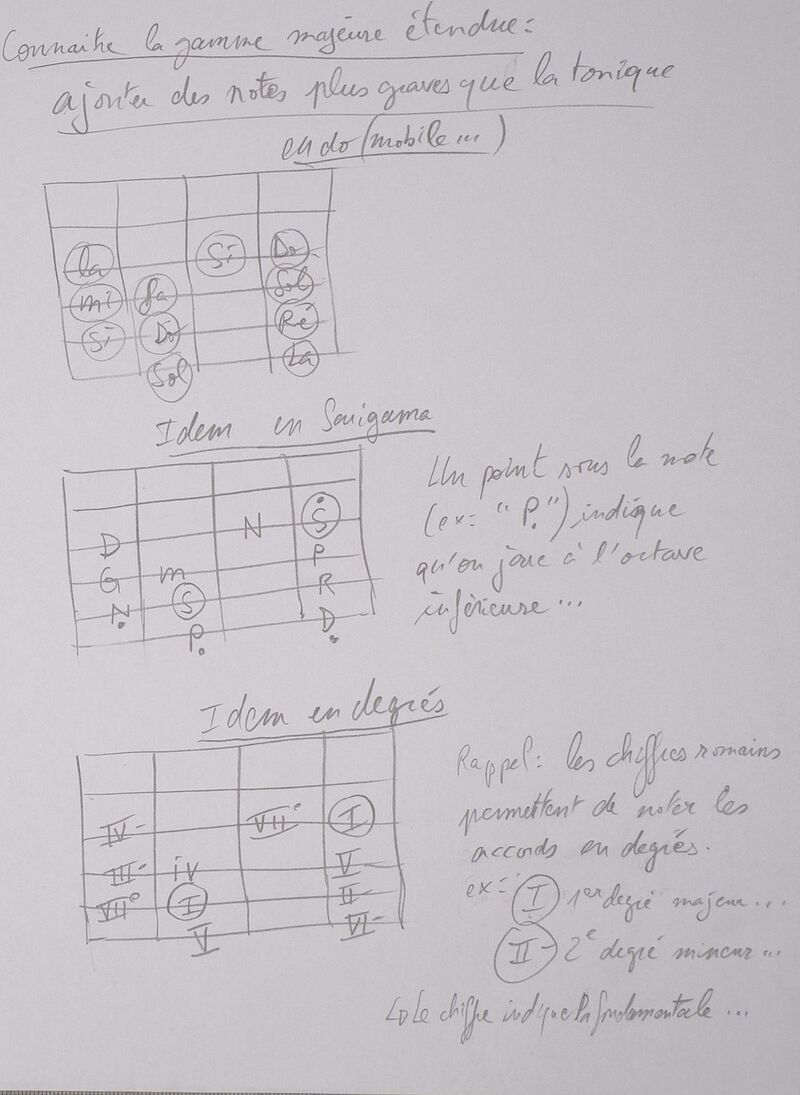 Connaitre la gamme majeure étendue :
ajouter des notes plus graves que la tonique
en do (mobile ...)
la Si Do
mi fa Sol
Si Do Ré
Sol La
Idem en Sarigama
Un point sous la note
(ex: "Ṗ.") indique
qu'on joue à l'octave
inférieure ...
N Ṡ
D P
G m R
Ṇ S
P. D.
Idem en degrés
Rappel : les chiffres romains
permettent de noter les
accords en degrés.
ex : I 1er degré majeur ...
II- 2e degré mineur ...
IV- VII° I
III- iv V
VII° I II-
V VI-
Le chiffre indique la fondamentale ...